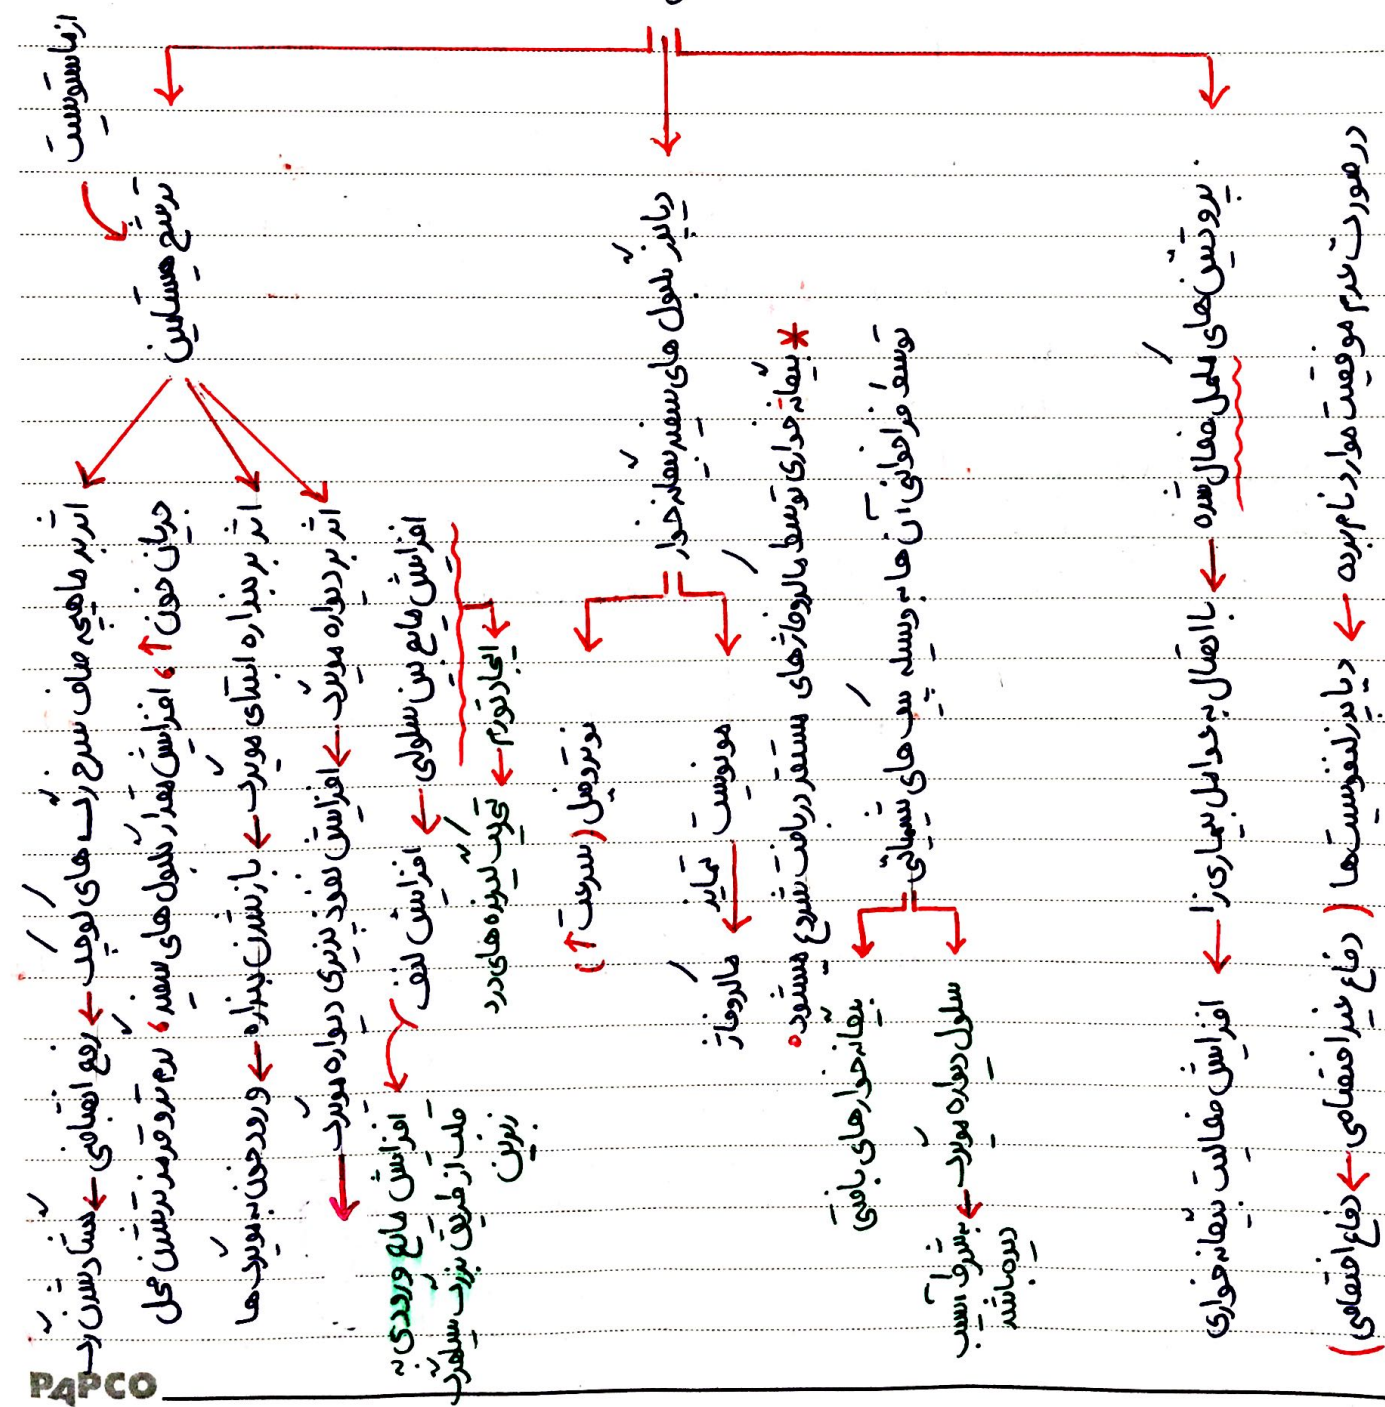 از ماستوسیت
ترشح هیستامین
اثر بر ماهیچه صاف سرخرگ های کوچک ← رفع انقباض ← گشاد شدن رگ
جریان خون ↑، افزایش مقدار گلبول های سفید، گرم تر و قرمزتر شدن محل
اثر بر بنداره ابتدای مویرگ ← باز شدن بنداره ← ورود خون به مویرگ ها
اثر بر دیواره مویرگ ← افزایش نفوذپذیری دیواره مویرگ ←
افزایش مایع بین سلولی ← افزایش لنف
افزایش مایع ورودی به
قلب از طریق بزرگ سیاهرگ
زبرین
ایجاد تورم ← تحریک گیرنده های درد
دیاپدز گلبول های سفید بیگانه خوار
نوتروفیل (سرعت ↑)
مونوسیت تمایز ← ماکروفاژ
* بیگانه خواری توسط ماکروفاژهای مستقر در بافت شروع میشود.
توسط فراخوانی آن ها به وسیله پیک های شیمیایی
بیگانه خوارهای بافتی
سلول دیواره مویرگ ← به شرط آسیب
دیده باشد
پروتئین های مکمل فعال شده ← با اتصال به عوامل بیماری زا ← افزایش فعالیت بیگانه خواری
در صورت عدم موفقیت موارد نام برده ← دیاپدز لنفوسیت ها (دفاع غیر اختصاصی ← دفاع اختصاصی)
PAPCO